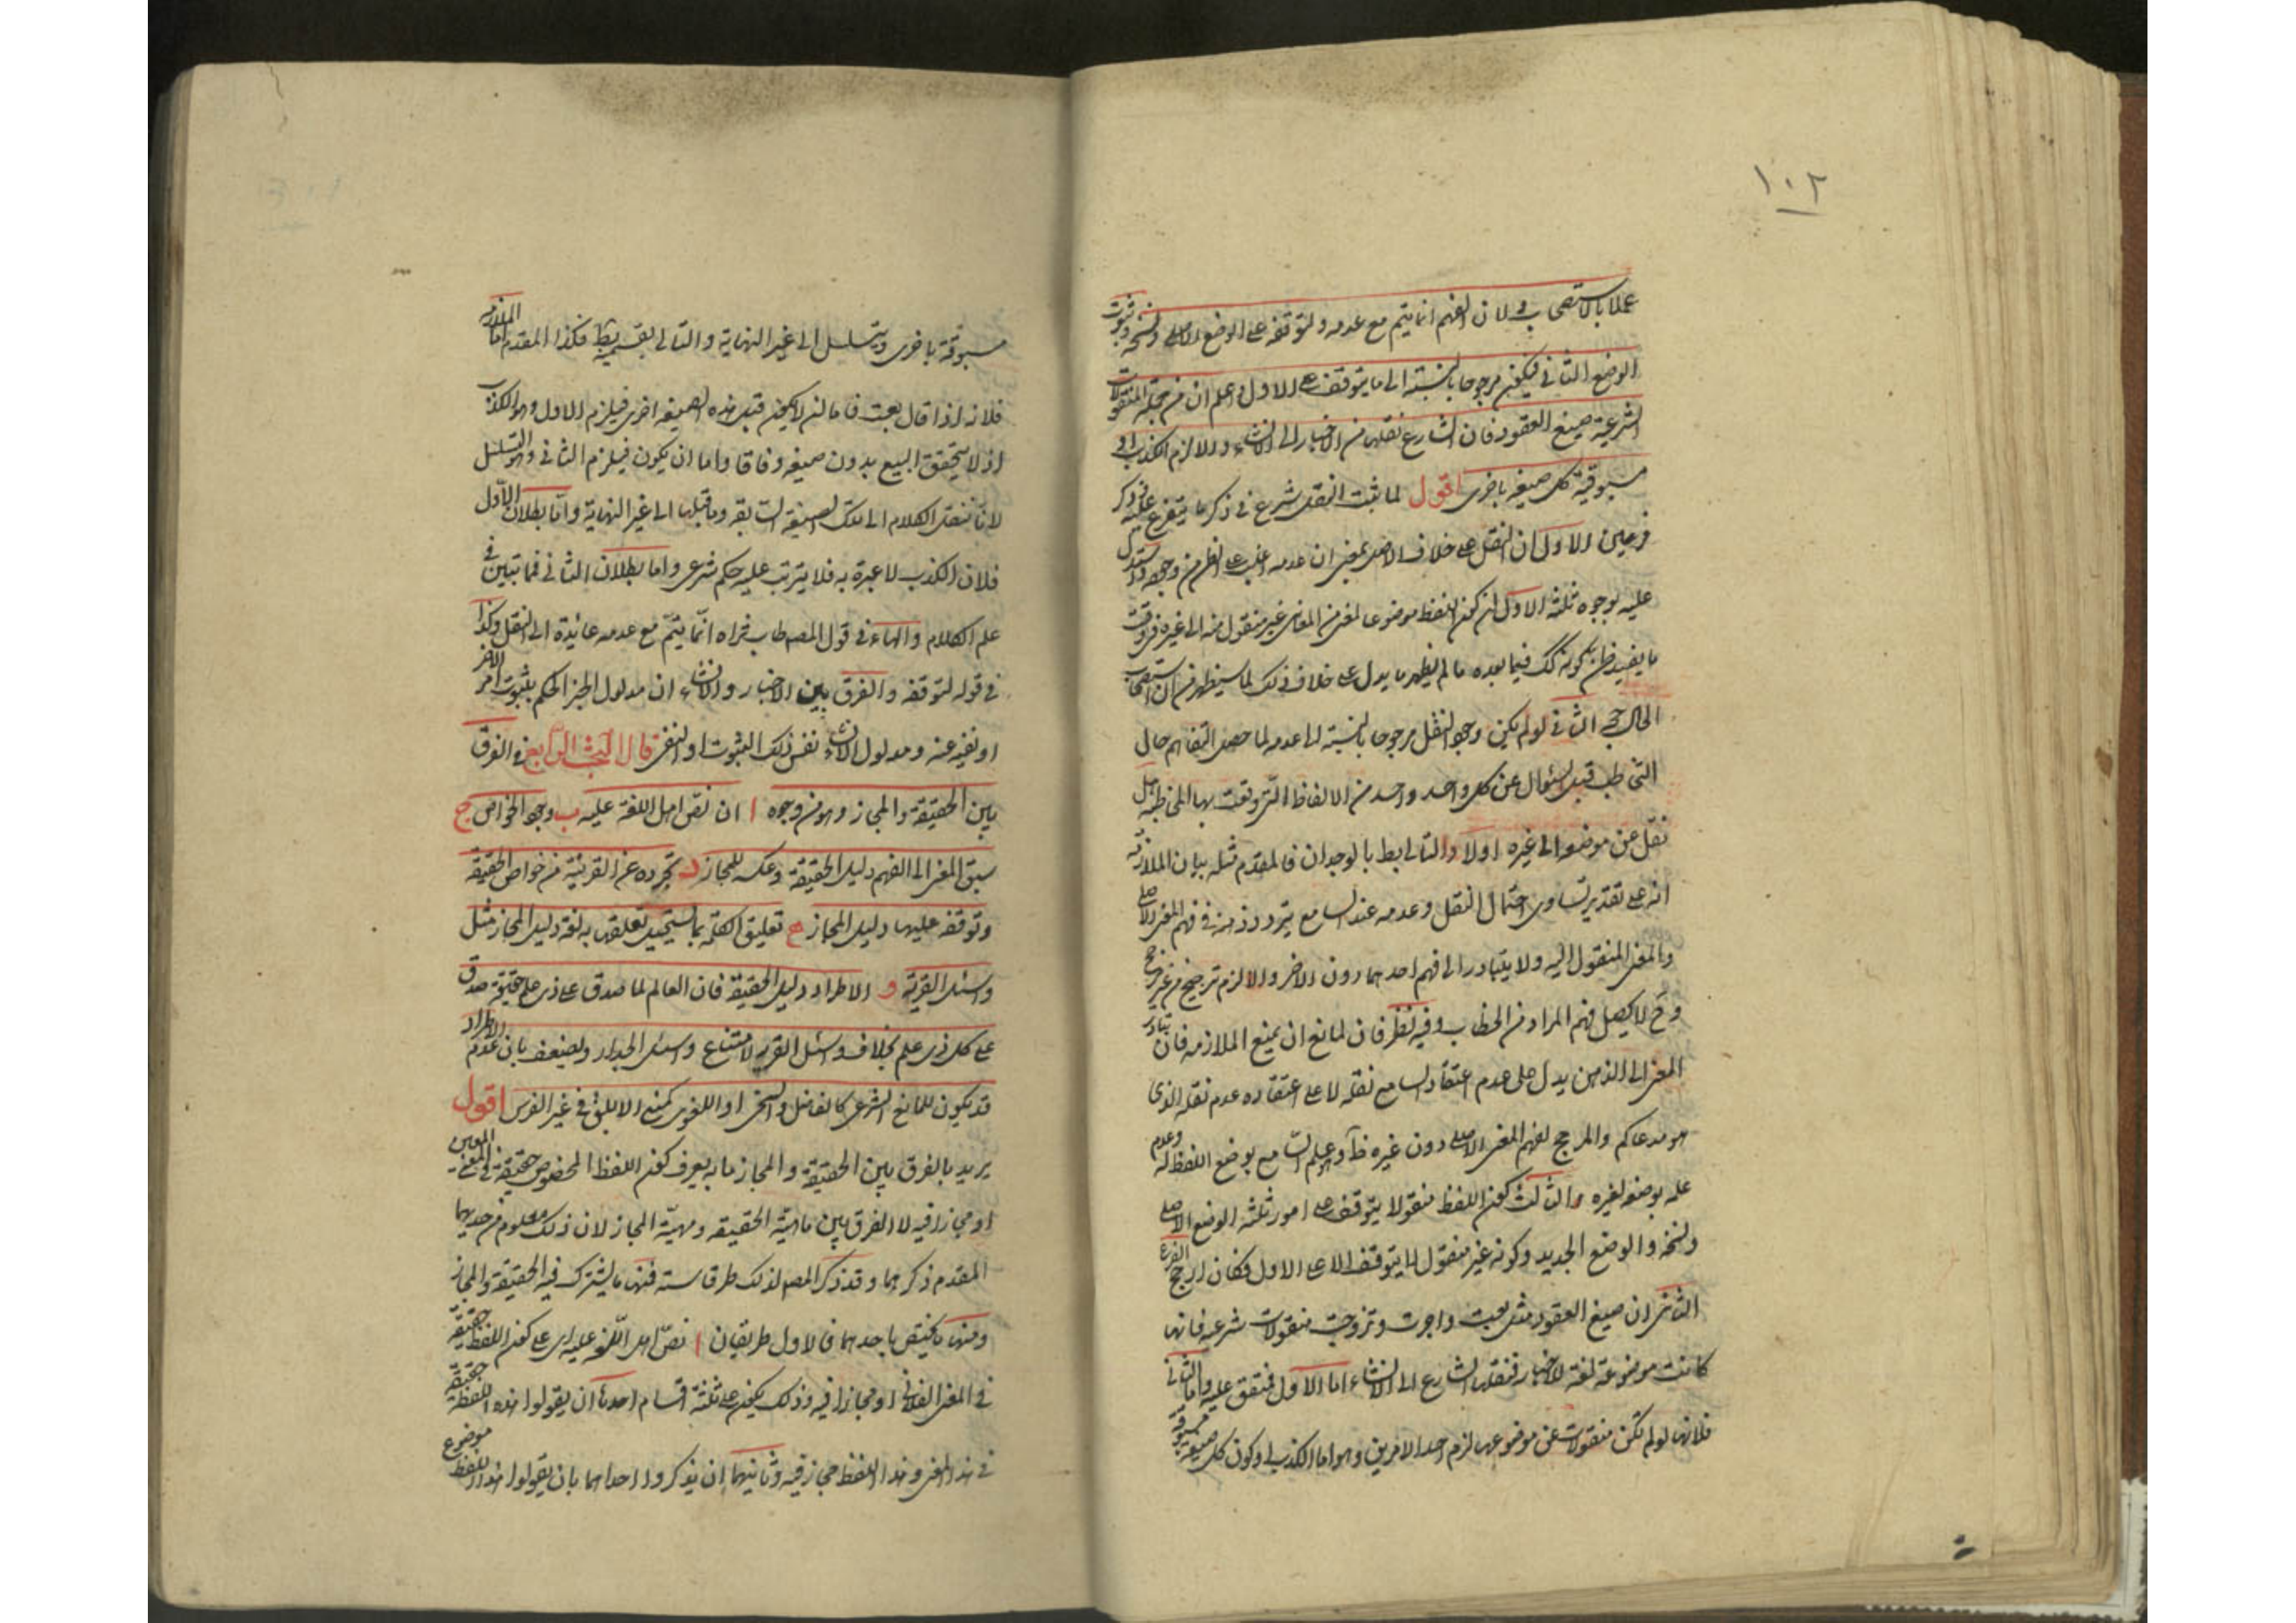 ١٠٢
عملا بالاستصحاب ولان الفهم انما يتم مع عدمه ولتوقفه على الوضع الاصلى ونسخه وثبوت
الوضع الثانى فيكون مرجوحا بالنسبة الى ما يتوقف على الاول واعلم ان من جملة المنقولات
الشرعية صيغ العقود فان الشارع نقلها من الاخبار الى الانشاء والا لزم الكذب او
مسبوقية كل صيغة باخرى اقول لما ثبت النقل شرع فى ذكر ما يتفرع عليه وذكر
فرعين الاول ان النقل على خلاف الاصل بمعنى ان عدمه اغلب على الظن من وجوده واستدل
عليه بوجوه ثلثة الاول ان كون اللفظ موضوعا لمعنى من المعانى غير منقول منه الى غيره فى وقت
ما يفيد ظن كونه كك فيما بعده ما لم يظهر ما يدل على خلاف ذلك لما سيظهر من ان استصحاب
الحال حجة الثانى لو لم يكن وجود النقل مرجوحا بالنسبة الى عدمه لما حصل التفاهم حال
التخاطب قبل السؤال عن كل واحد واحد من الالفاظ التى وقعت بها المخاطبة هل
نقل عن موضوعه الى غيره اولا والتالى بط بالوجدان فالمقدم مثله بيان الملازمة
انه على تقدير تساوى احتمال النقل وعدمه عند السامع يتردد ذهنه فى فهم المعنى الاصلى
والمعنى المنقول اليه ولا يتبادر الى فهم احدهما دون الاخر والا لزم ترجيح من غير مرجح
وح لا يحصل فهم المراد من الخطاب وفيه نظر فان لمانع ان يمنع الملازمه فان تبادر
المعنى الى الذهن يدل على عدم اعتقاد السامع نقله لا على اعتقاده عدم نقله الذى
هو مدعاكم والمرجح لفهم المعنى الاصلى دون غيره ظ وهو علم السامع بوضع اللفظ له وعدم
علمه بوضعه لغيره والثالث كون اللفظ منقولا يتوقف على امور ثلثه الوضع الاصلى
ونسخه والوضع الجديد وكونه غير منقول لا يتوقف الا على الاول فكان ارجح الفرع
الثانى ان صيغ العقود مثل بعت واجرت وتزوجت منقولات شرعيه فانها
كانت موضوعة لغة للاخبار فنقلها الشارع الى الانشاء اما الاول فمتفق عليه واما الثانى
فلانها لو لم تكن منقولات عن موضوعها لزم احد الامرين وهو اما الكذب او كون كل صيغة مسبوقة
مسبوقة باخرى ويتسلسل الى غير النهاية والتالى بقسميه بط فكذا المقدم اما الملازمة
فلانه اذا قال بعت فاما ان لا يكون قبل هذه الصيغه اخرى فيلزم الاول وهو الكذب
اذ لا يتحقق البيع بدون صيغه وفاقا واما ان يكون فيلزم الثانى وهو التسلسل
لانا ننقل الكلام الى تلك الصيغة السابقه وما قبلها الى غير النهاية واما بطلان الاول
فلان الكذب لا عبرة به فلا يترتب عليه حكم شرعى واما بطلان الثانى فلما تبين فى
علم الكلام والهاء فى قول المصطاب ثراه انما يتم مع عدمه عائدة الى النقل وكذا
فى قوله لتوقفه والفرق بين الاخبار والانشاء ان مدلول الخبر الحكم بثبوت امر لاخر
او نفيه عنه ومدلول الانشاء نفس ذلك الثبوت او النفى قال البحث الرابع فى الفرق
بين الحقيقة والمجاز وهو من وجوه ا ان نص اهل اللغة عليه ب وجود الخواص ج
سبق المعنى الى الفهم دليل الحقيقة وعكسه للمجاز د تجرده عن القرينة من خواص الحقيقة
وتوقفه عليها دليل المجاز ه تعليق الكلمة بما يستحيل تعلقها به لغة دليل المجاز مثل
واسئل القرية و الاطراد دليل الحقيقة فان العالم لما صدق على ذى علم حقيقة صدق
على كل ذى علم بخلاف واسئل القرية لامتناع واسئل الجدار ويضعف بان عدم الاطراد
قد يكون للمانع الشرعى كالفاضل والسخى او اللغوى كمنع الابلق فى غير الفرس اقول
يريد بالفرق بين الحقيقة والمجاز ما به يعرف كون اللفظ المخصوص حقيقة فى المعنى المعين
او مجازا فيه لا الفرق بين ماهية الحقيقه ومهية المجاز لان ذلك معلوم من حديهما
المقدم ذكرهما وقد ذكر المص لذلك طرقا ستة فمنها ما يشترك فيه الحقيقة والمجاز
ومنها ما يختص باحدهما فالاول طريقان ا نص اهل اللغه عليه اى على كون اللفظ حقيقة
فى المعنى الفلانى او مجازا فيه وذلك يكون على ثلثة اقسام احدها ان يقولوا هذه اللفظة حقيقة
فى هذا المعنى وهذا اللفظ مجاز فيه وثانيهما ان يذكروا احداهما بان يقولوا هذا اللفظ موضوع